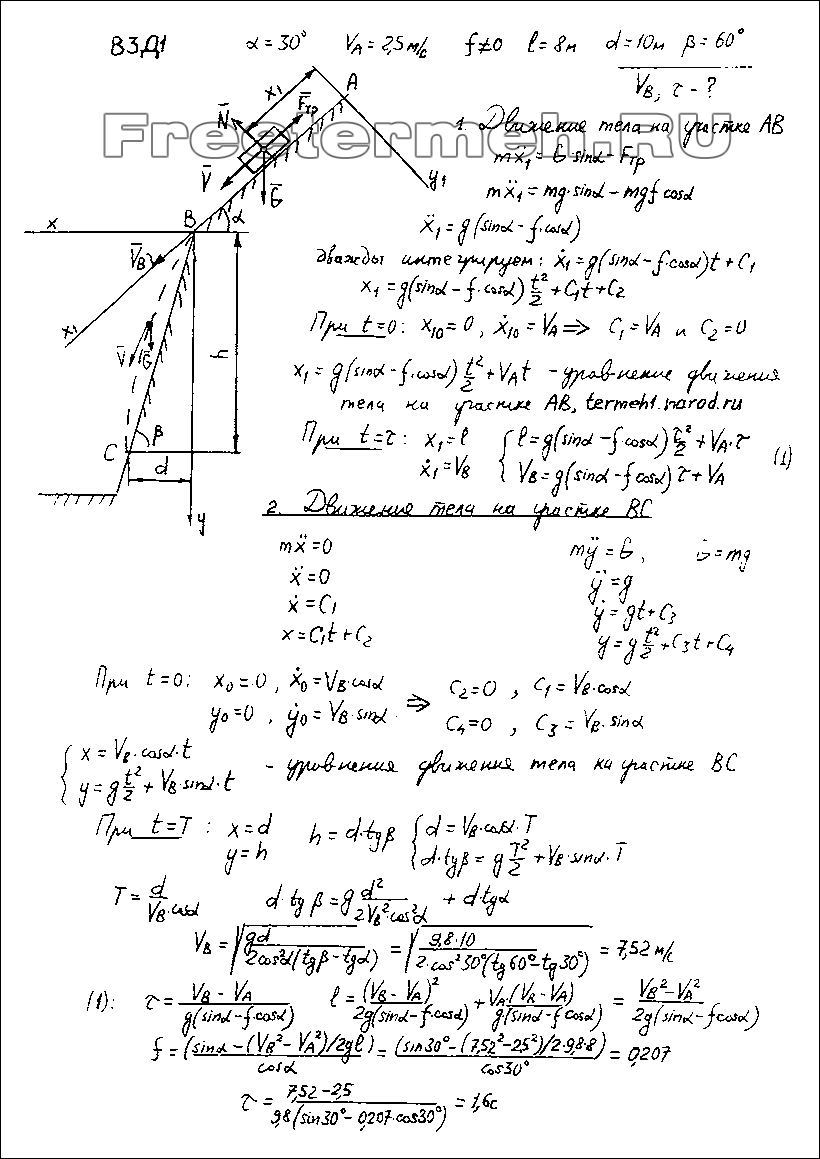 ВЗД1 α=30° V_A=2,5 м/с f≠0 l=8м d=10м β=60°
V_B, τ - ?
Freetermeh.RU
x₁ A
N̄ F̄тр
V̄ Ḡ y₁
x B α
V̄_B
x₁ V̄ Ḡ h
C β
d
y
1. Движение тела на участке АВ
mẍ₁=G·sinα-Fтр
mẍ₁=mg·sinα-mgf cosα
ẍ₁=g(sinα-f·cosα)
дважды интегрируем: ẋ₁=g(sinα-f·cosα)t+C₁
x₁=g(sinα-f·cosα) t²/2+C₁t+C₂
При t=0: x₁₀=0, ẋ₁₀=V_A ⇒ C₁=V_A и C₂=0
x₁=g(sinα-f·cosα) t²/2+V_A t - уравнение движения
тела на участке АВ, termeh1.narod.ru
При t=τ: x₁=l { l=g(sinα-f cosα) τ²/2+V_A·τ (1)
ẋ₁=V_B { V_B=g(sinα-f cosα) τ+V_A
2. Движения тела на участке ВС
mẍ=0 mÿ=G, G=mg
ẍ=0 ÿ=g
ẋ=C₁ ẏ=gt+C₃
x=C₁t+C₂ y=g t²/2+C₃t+C₄
При t=0: x₀=0, ẋ₀=V_B·cosα ⇒ C₂=0, C₁=V_B·cosα
y₀=0, ẏ₀=V_B·sinα C₄=0, C₃=V_B·sinα
{ x=V_B·cosα·t
{ y=g t²/2+V_B·sinα·t - уровнения движения тела на участке ВС
При t=T: x=d h=d·tgβ { d=V_B·cosα·T
y=h { d·tgβ=g T²/2+V_B·sinα·T
T=d/(V_B·cosα) d·tgβ=g d²/(2V_B²·cos²α)+d·tgα
V_B=√(gd/(2cos²α(tgβ-tgα)))=√(9,8·10/(2·cos²30°(tg60°-tg30°)))=7,52 м/с
(1): τ=(V_B-V_A)/(g(sinα-f·cosα)) l=(V_B-V_A)²/(2g(sinα-f·cosα))+V_A·(V_B-V_A)/(g(sinα-f·cosα))=(V_B²-V_A²)/(2g(sinα-f cosα))
f=(sinα-(V_B²-V_A²)/2gl)/cosα=(sin30°-(7,52²-2,5²)/2·9,8·8)/cos30°=0,207
τ=(7,52-2,5)/(9,8(sin30°-0,207·cos30°))=1,6с